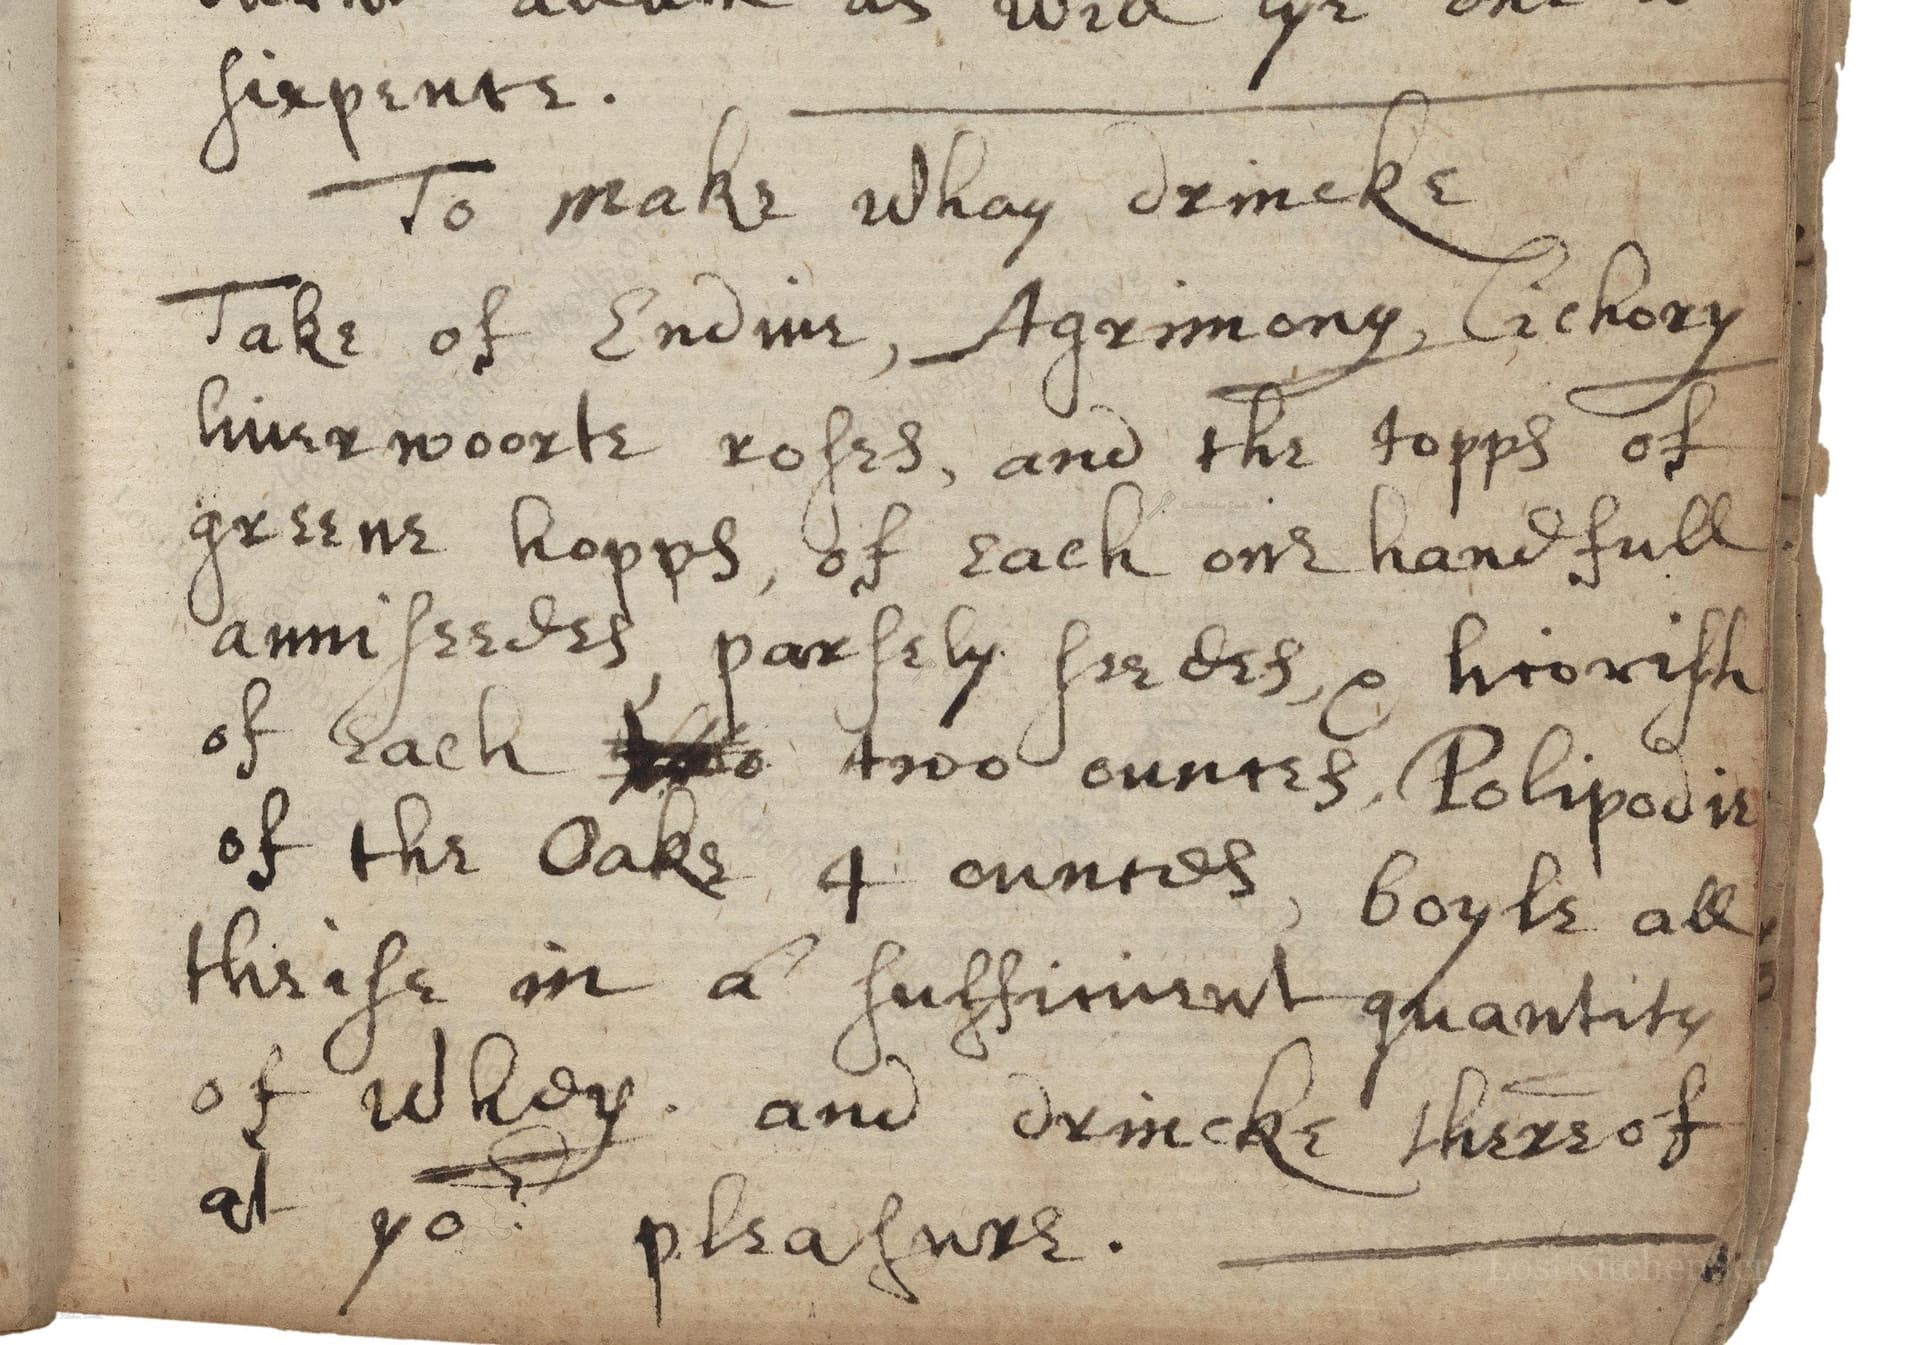 as
sixpence.
To make whay drincke
Take of Endiue, Agrimony, Cichory
liuerwoorte roses, and the topps of
greene hopps, of each one handfull
anniseedes, parsely seedes, & licorish
of each two ounces, Polipodie
of the Oake 4 ounces, boyle all
theise in a sufficient quantity
of whey. and drincke thereof
at yor pleasure.